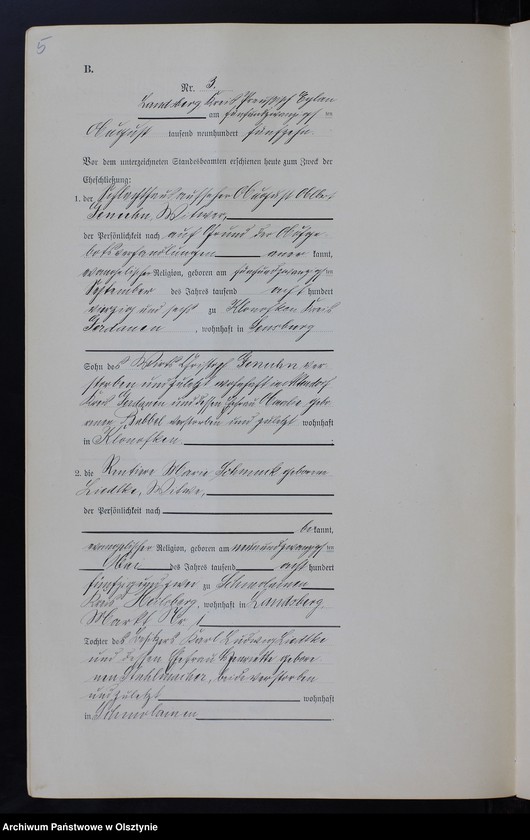 5
B.
Nr. 3.
Landsberg Kreis Preußisch Eylau
am fünfundzwanzigsten
August tausend neunhundert fünfzehn.
Vor dem unterzeichneten Standesbeamten erschienen heute zum Zweck der
Eheschließung:
1. der Schlachthausaufseher August Albert
Witwer,
der Persönlichkeit nach auf Grund der Aufge-
botsverhandlungen aner kannt,
evangelischer Religion, geboren am fünfundzwanzigsten
September des Jahres tausend acht hundert
vierzig und sechs zu Klonofken Kreis
Gerdauen, wohnhaft in Sensburg
Sohn des Wirts Christoph ver-
storben und zuletzt wohnhaft in Altendorf
Kreis Gerdauen und dessen Ehefrau gebo-
renen Babbel verstorben und zuletzt wohnhaft
in Klonofken.
2. die Rentiere Marie Schmuck geborene
Liedtke, Witwe,
der Persönlichkeit nach
be kannt,
evangelischer Religion, geboren am neunundzwanzigsten
des Jahres tausend acht hundert
fünfzig und zwei zu Schmolainen
Kreis Heilsberg, wohnhaft in Landsberg,
Markt Nr. 1
Tochter des Besitzers Karl Ludwig Liedtke
und dessen Ehefrau Henriette gebore-
nen Stuhlmacher, beide verstorben
und zuletzt wohnhaft
in Schmolainen
Archiwum Państwowe w Olsztynie